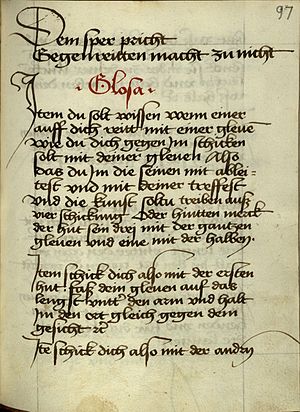 97
Dein sper pricht
Gegenreitten macht zu nicht
Glosa
Item du solt wissen wenn einer
auff dich reitt mit einer gleuen
wie du dich gegen im schicken
solt mit deiner gleuen Also
das du im die seinen mit ablei-
test und mit deiner treffest
und die kunst soltu treiben auß
vier schickung Oder hutten merck
der hůt sein drej mit der gantzen
gleuen und eine mit der halben.
Item schick dich also mit der ersten
hut faß dein gleuen auf das
lengst unttr den arm und halt
im den ort gleich gegen dem
gesicht rc
Ite schick dich also mit der andrn